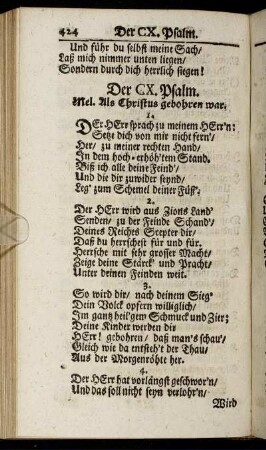 424 Der CX. Psalm.
Und führ du selbst meine Sach/
Laß mich nimmer unten liegen/
Sondern durch dich herrlich siegen!
Der CX. Psalm.
Mel. Als Christus gebohren war.
1.
DEr HErr sprach zu meinem HErr'n:
Setz dich von mir nicht fern'/
Her/ zu meiner rechten Hand/
In dem hoch-erhöh'tem Stand.
Biß ich alle deine Feind'/
Und die dir zuwider seynd/
Leg' zum Schemel deiner Füß'.
2.
Der HErr wird aus Zions Land'
Senden/ zu der Feinde Schand'/
Deines Reichs Stepter dir/
Daß du herrschest für und für.
Herrsche mit sehr grosser Macht/
Zeige deine Stärck' und Pracht/
Unter deinen Feinden weit.
3.
So wird dir/ nach deinem Sieg'
Dein Volck opfern williglich/
Im gantz heil'gem Schmuck und Zier;
Deine Kinder werden dir
HErr! gebohren/ daß man's schau'/
Gleich wie da entsteh't der Thau/
Aus der Morgenröhte her.
4.
Der HErr hat vorlängst geschwor'n/
Und das soll nicht seyn verlohr'n/
Wird